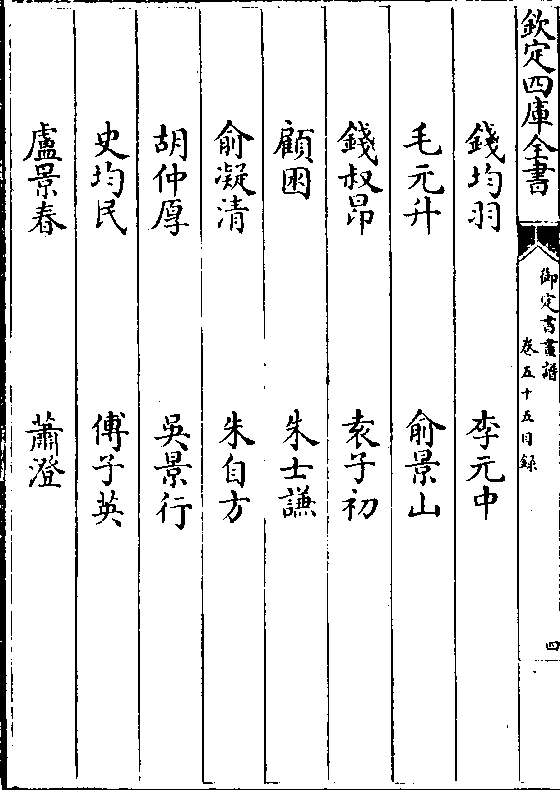 欽定四庫全書
御定書畫譜
卷五十五目録
四
錢均羽 李元中
毛元升 俞景山
錢叔昂 袁子初
顧囦 朱士謙
俞凝清 朱自方
胡仲厚 吳景行
史均民 傅子英
盧景春 蕭澄